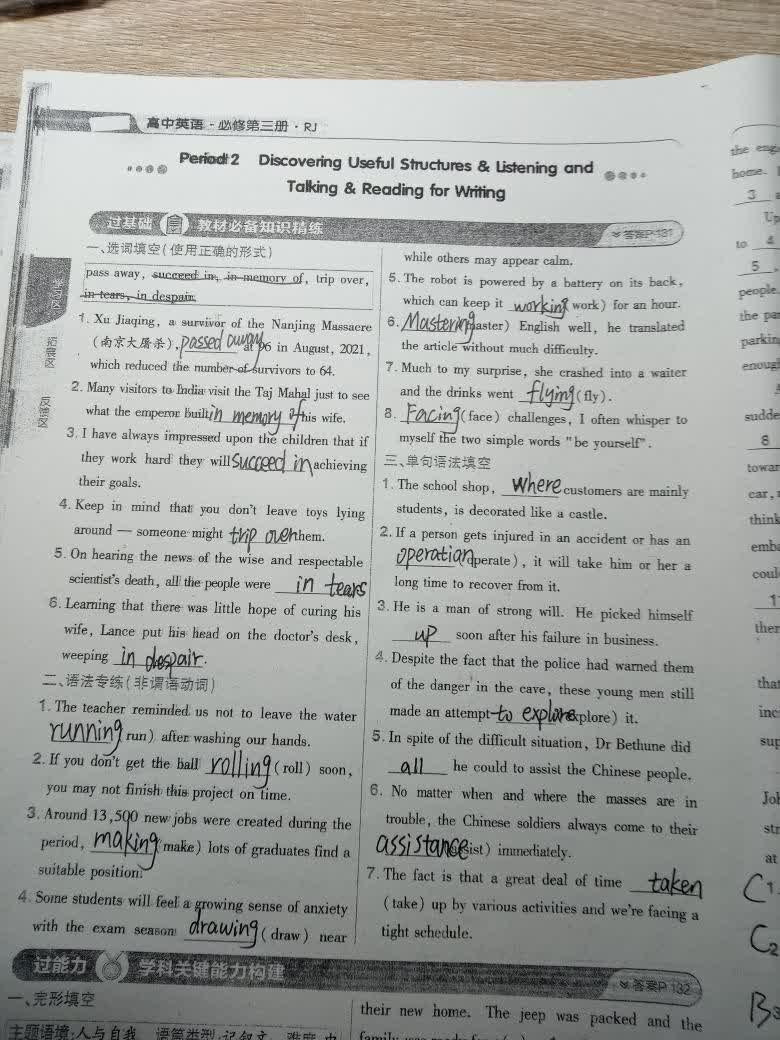 高中英语·必修第三册·RJ
Period 2 Discovering Useful Structures & Listening and
Talking & Reading for Writing
过基础 教材必备知识精练
答案P 131
一、选词填空(使用正确的形式)
pass away, succeed in, in memory of, trip over,
in tears, in despair
1. Xu Jiaqing, a survivor of the Nanjing Massacre
(南京大屠杀), passed away at 96 in August, 2021,
which reduced the number of survivors to 64.
2. Many visitors to India visit the Taj Mahal just to see
what the emperor built in memory of his wife.
3. I have always impressed upon the children that if
they work hard they will succeed in achieving
their goals.
4. Keep in mind that you don't leave toys lying
around — someone might trip over them.
5. On hearing the news of the wise and respectable
scientist's death, all the people were in tears
6. Learning that there was little hope of curing his
wife, Lance put his head on the doctor's desk,
weeping in despair.
二、语法专练(非谓语动词)
1. The teacher reminded us not to leave the water
running run) after washing our hands.
2. If you don't get the ball rolling (roll) soon,
you may not finish this project on time.
3. Around 13,500 new jobs were created during the
period, making (make) lots of graduates find a
suitable position.
4. Some students will feel a growing sense of anxiety
with the exam season drawing (draw) near
while others may appear calm.
5. The robot is powered by a battery on its back,
which can keep it working work) for an hour.
6. Mastering master) English well, he translated
the article without much difficulty.
7. Much to my surprise, she crashed into a waiter
and the drinks went flying (fly).
8. Facing (face) challenges, I often whisper to
myself the two simple words "be yourself".
三、单句语法填空
1. The school shop, where customers are mainly
students, is decorated like a castle.
2. If a person gets injured in an accident or has an
operation operate), it will take him or her a
long time to recover from it.
3. He is a man of strong will. He picked himself
up soon after his failure in business.
4. Despite the fact that the police had warned them
of the danger in the cave, these young men still
made an attempt to explore explore) it.
5. In spite of the difficult situation, Dr Bethune did
all he could to assist the Chinese people.
6. No matter when and where the masses are in
trouble, the Chinese soldiers always come to their
assistance assist) immediately.
7. The fact is that a great deal of time taken
(take) up by various activities and we're facing a
tight schedule.
过能力 学科关键能力构建
答案P 132
一、完形填空
主题语境:人与自我 语篇类型:记叙文
their new home. The jeep was packed and the
the eng
home.
3
Up
to 4
5
people.
the par
parkin
enoug
sudde
8
towar
car,
think
emb
coul
1
ther
that
inc
sup
Joh
str
at
C 1.
C 2
B 3